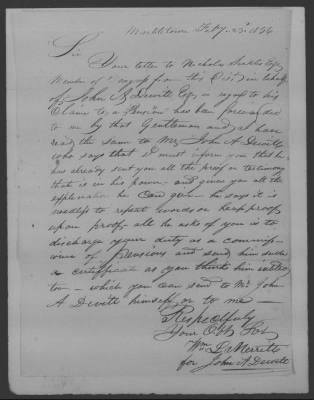 Marbletown Feby. 23d 1854
Sir
Your letter to Nicholas Sickles Esqr
Member of Congress from this Dist, in behalf
of John A DeWitt Esq, in regard to his
Claim to a Pension has been forwarded
to me by that Gentleman and I have
read the same to Mr. John A Dewitt
who says that I must inform you that he
has already sent you all the proof or testimony
that is in his power and given you all the
explanation he can give he says it is
useless to repeat words or heap proof
upon proof all he asks of you is to
discharge your duty as a commiss-
ioner of Pensions and send him such
a certificate as you think him entitled
to - which you can send to Mr. John
A Dewitt himself or to me
Respectfully
Your Obt Svt
Wm D. Merritt
for John A Dewitt